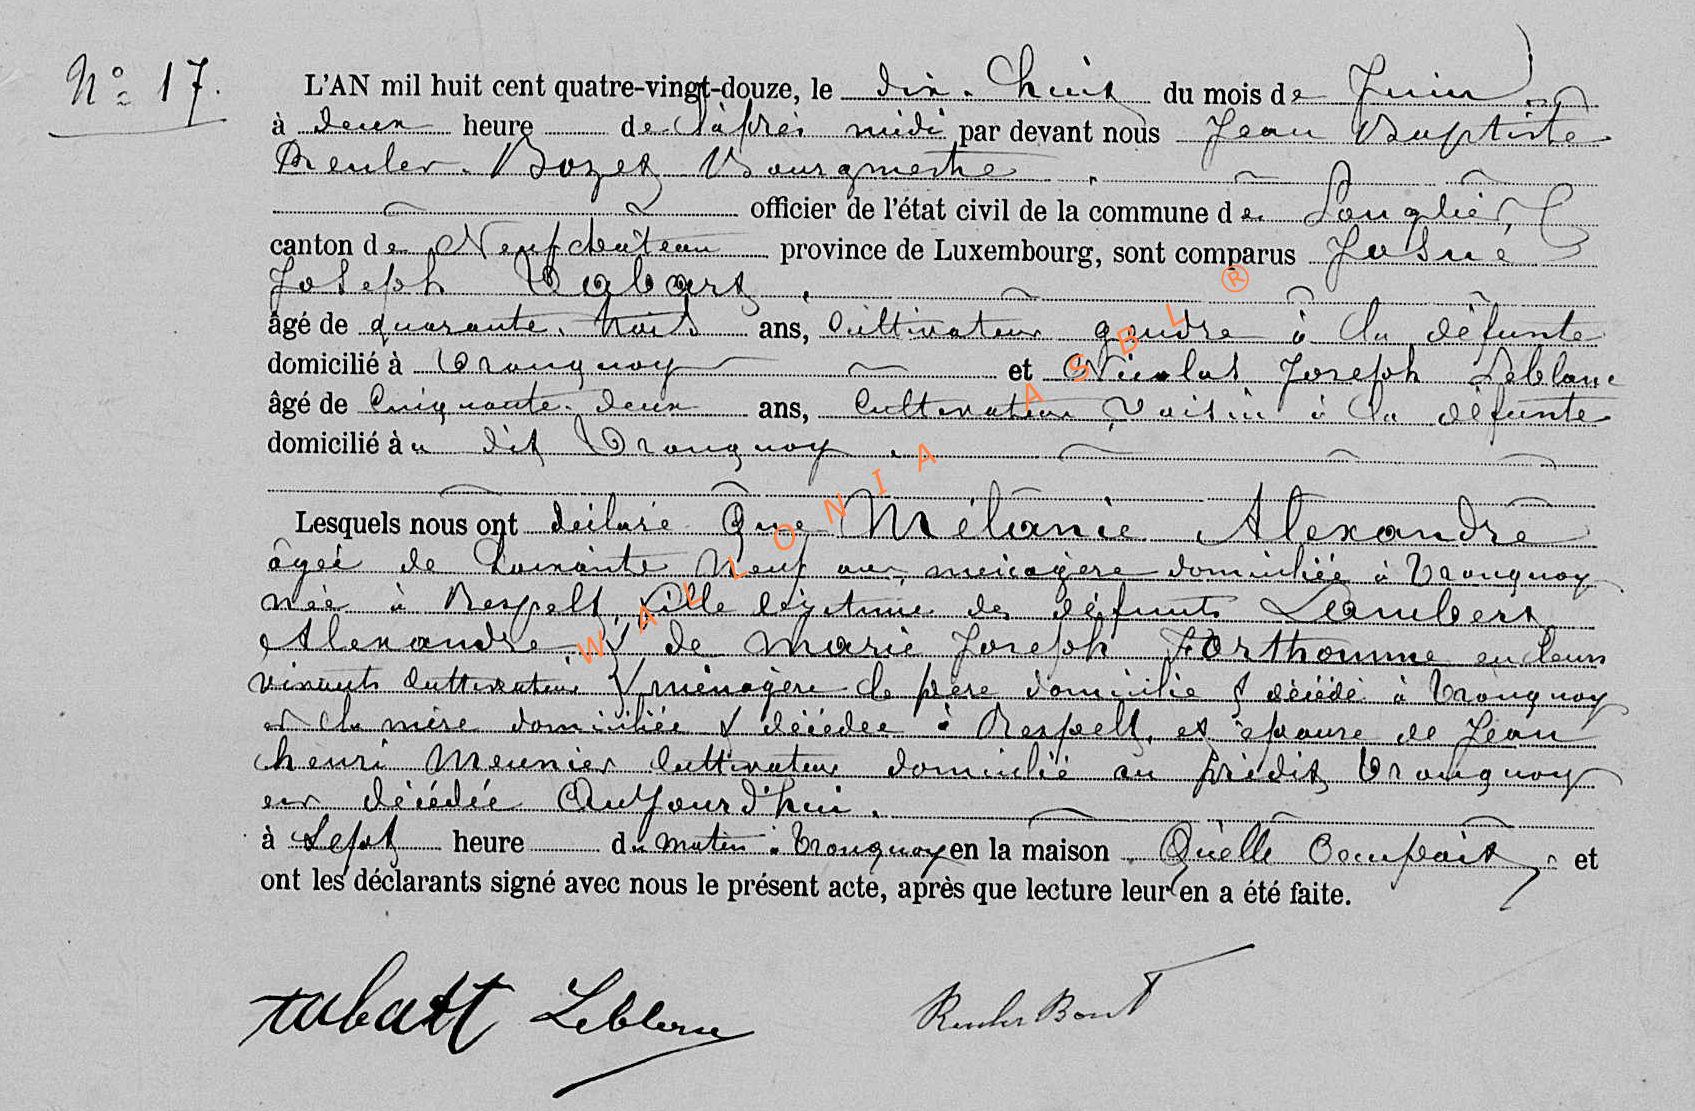 N° 17.
L'AN mil huit cent quatre-vingt-douze, le dix-huit du mois de Juin
à deux heure de l'après midi par devant nous Jean Baptiste
Reuler Bozet Bourgmestre
officier de l'état civil de la commune de Longlier
canton de Neufchâteau province de Luxembourg, sont comparus Josué
Joseph Tabart,
âgé de quarante-trois ans, Cultivateur gendre à la défunte
domicilié à Tronquoy et Nicolas Joseph Leblanc
âgé de Cinquante-deux ans, Cultivateur Voisin à la défunte
domicilié au dit Tronquoy.
Lesquels nous ont déclaré Que Mélanie Alexandre
âgée de Soixante Neuf ans, ménagère domiciliée à Tronquoy
née à Respelt, fille légitime des défunts Lambert
Alexandre, & de Marie Joseph Forthomme en leurs
vivants Cultivateur & ménagère le père domicilié & décédé à Tronquoy
et la mère domiciliée & décédée à Respelt, et épouse de Jean
henri Meunier Cultivateur domicilié au prédit Tronquoy
est décédée Aujourd'hui.
à Sept heure du matin à Tronquoy en la maison Qu'elle Occupait, et
ont les déclarants signé avec nous le présent acte, après que lecture leur en a été faite.
tabart Leblanc Reuler Bozet
WALLONIA ASBL ®